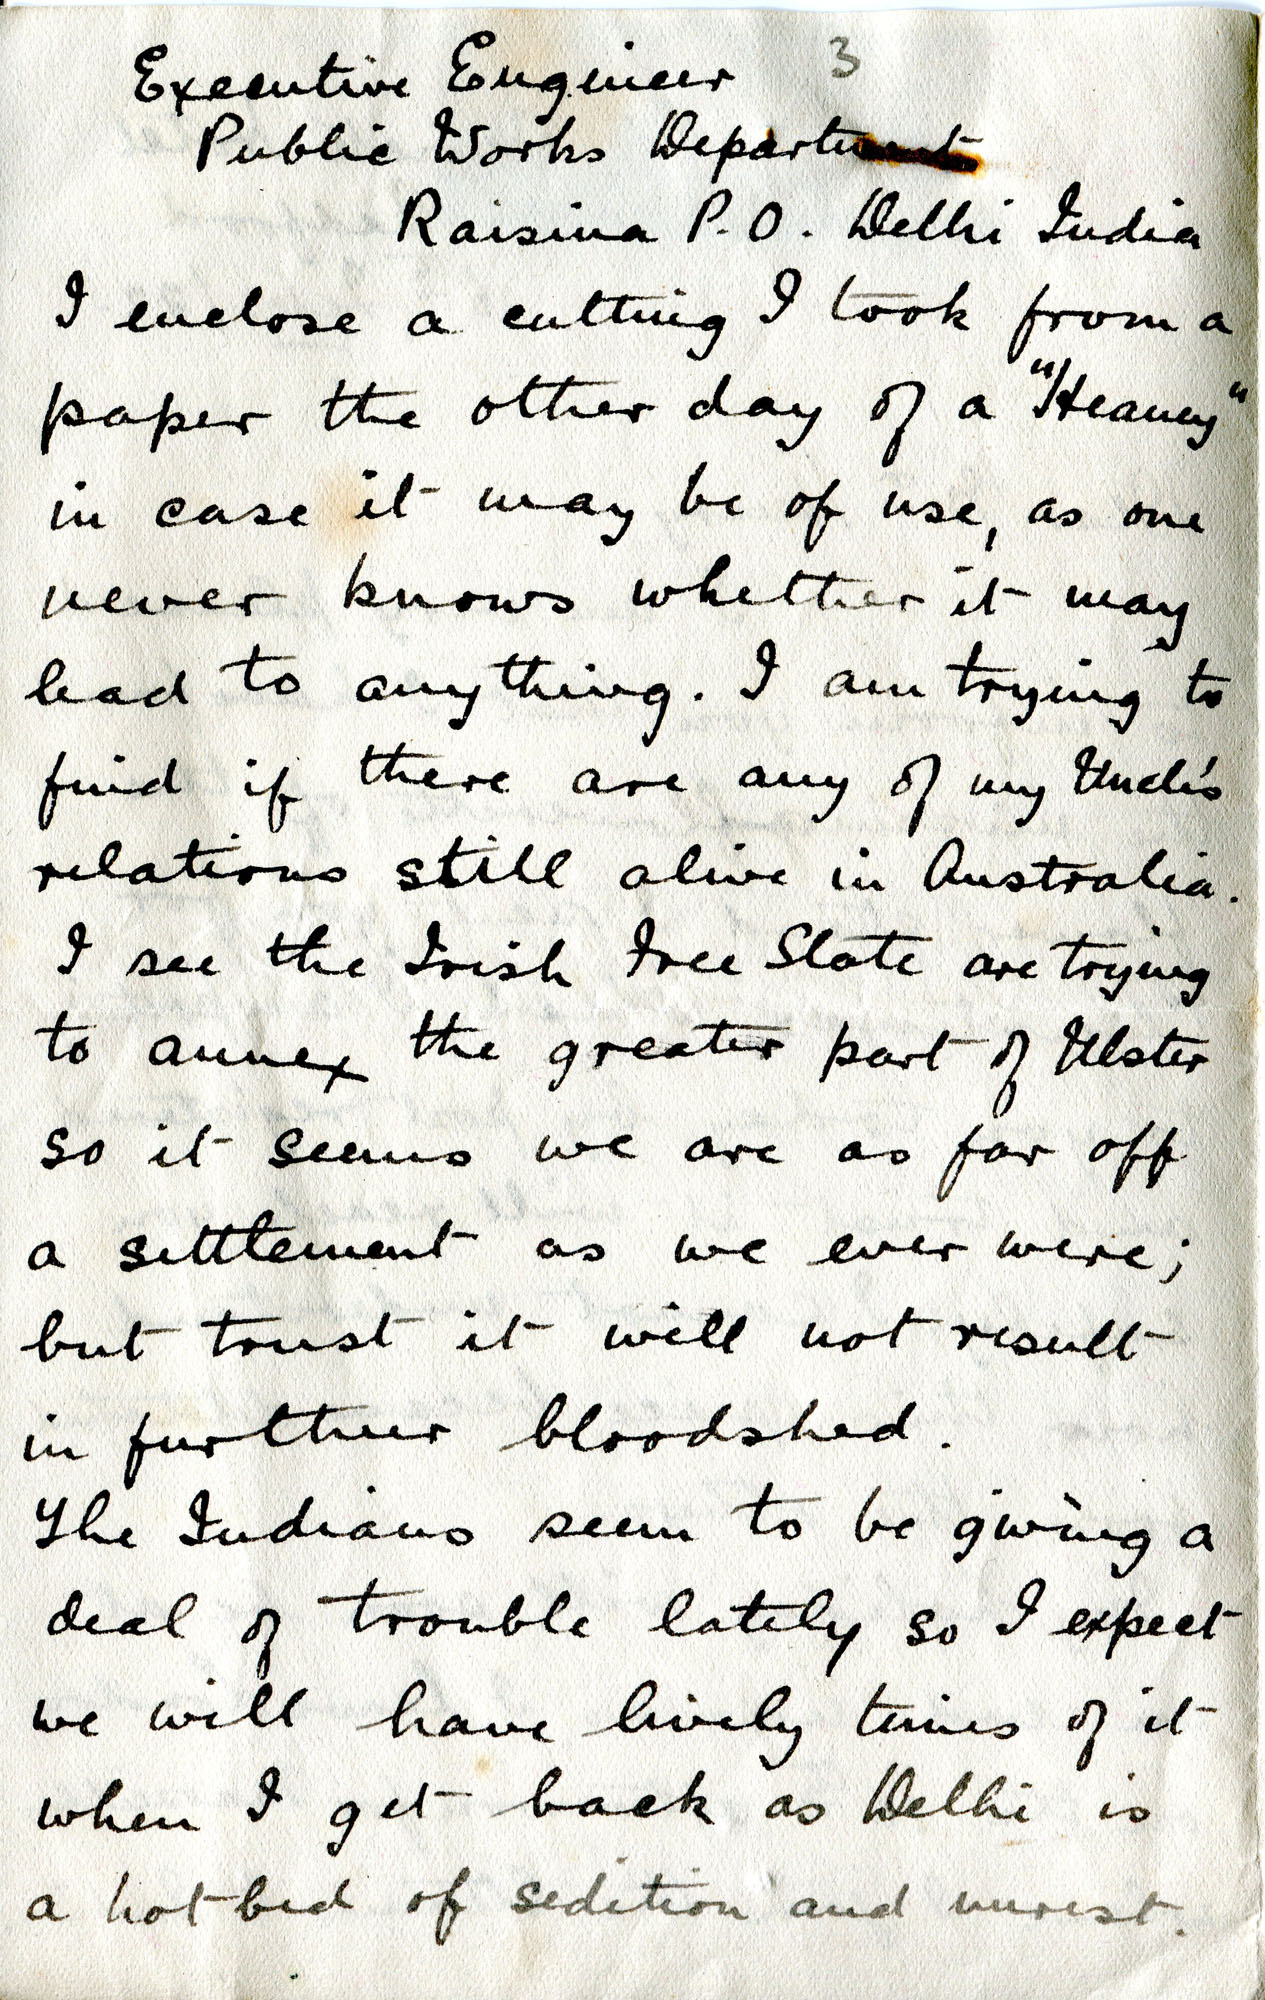 3
Executive Engineer
Public Works Department
Raisina P.O. Delhi India
I enclose a cutting I took from a
paper the other day of a "Heaney"
in case it may be of use, as one
never knows whether it may
lead to anything. I am trying to
find if there are any of my Uncle's
relations still alive in Australia.
I see the Irish Free State are trying
to annex the greater part of Ulster
so it seems we are as far off
a settlement as we ever were;
but trust it will not result
in further bloodshed.
The Indians seem to be giving a
deal of trouble lately so I expect
we will have lively times of it
when I get back as Delhi is
a hotbed of sedition and unrest.